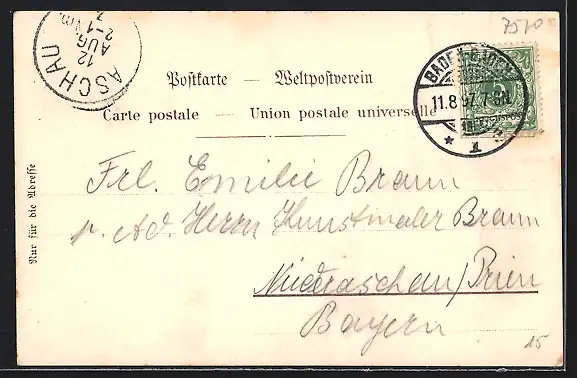 7510
ASCHAU
12 AUG
2-1 Nm.
BADEN-BADEN
11.8.97. 7-8N.
* 1
Postkarte — Weltpostverein
Carte postale — Union postale universelle
Nur für die Adresse
Frl. Emilie Braun
p. Ad. Herrn Kunstmaler Braun
Niederaschau/Prien
Bayern
15